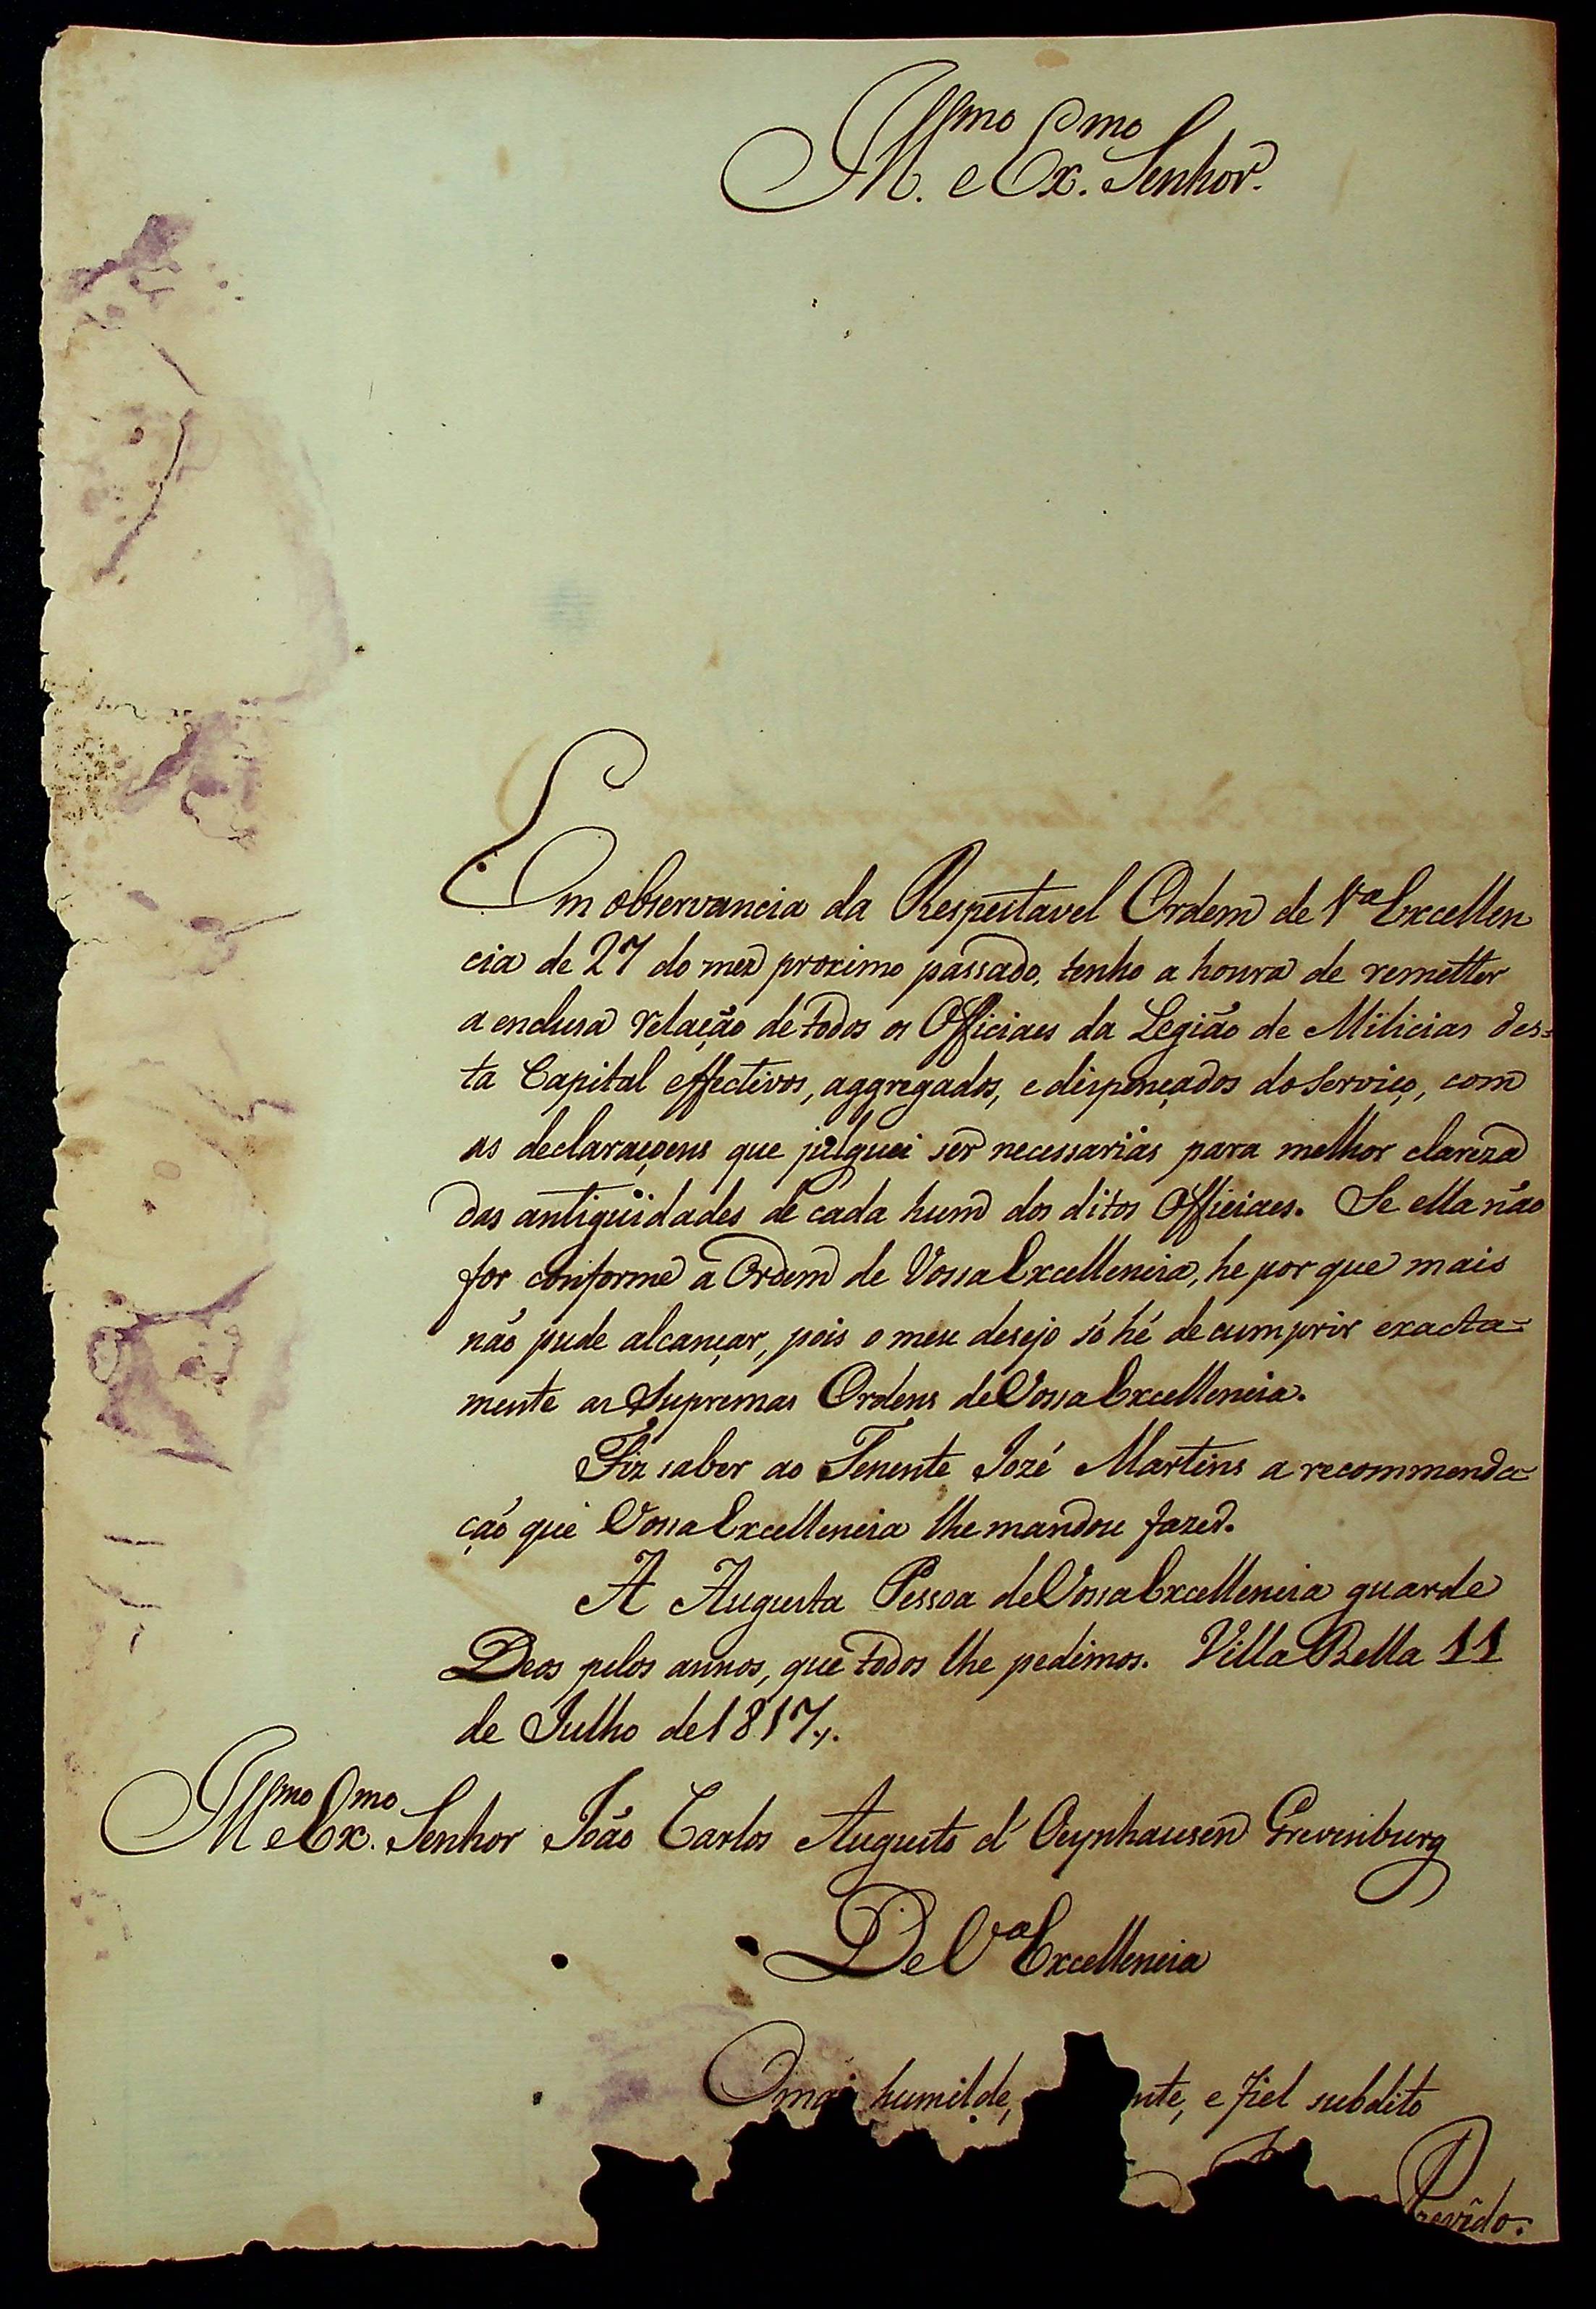 Ill.mo e Ex.mo Senhor.
Em observancia da Respeitavel Ordem de V.a Excellen
cia de 27 do mez proximo passado, tenho a honra de remetter
a enclusa relação de todos os Officiaes da Legião de Milicias des=
ta Capital effectivos, aggregados, e dispençados do serviço, com
as declaraçoens que julguei ser necessarias para melhor clareza
das antigüidades de cada hum dos ditos Officiaes. Se ella não
for conforme a Ordem de Vossa Excellencia, he por que mais
não pude alcançar, pois o meu desejo só hé de cumprir exacta=
mente as Supremas Ordens de Vossa Excellencia.
Fiz saber ao Tenente Jozé Martins a recommenda=
ção que Vossa Excellencia lhe mandou fazer.
A Augusta Pessoa de Vossa Excellencia guarde
Deos pelos annos, que todos lhe pedimos. Villa Bella 11
de Julho de 1817.,
Ill.mo e Ex.mo Senhor João Carlos Augusto d' Oeynhausen Grevenburg
De V.a Excellencia
O mai humilde, nte, e fiel subdito